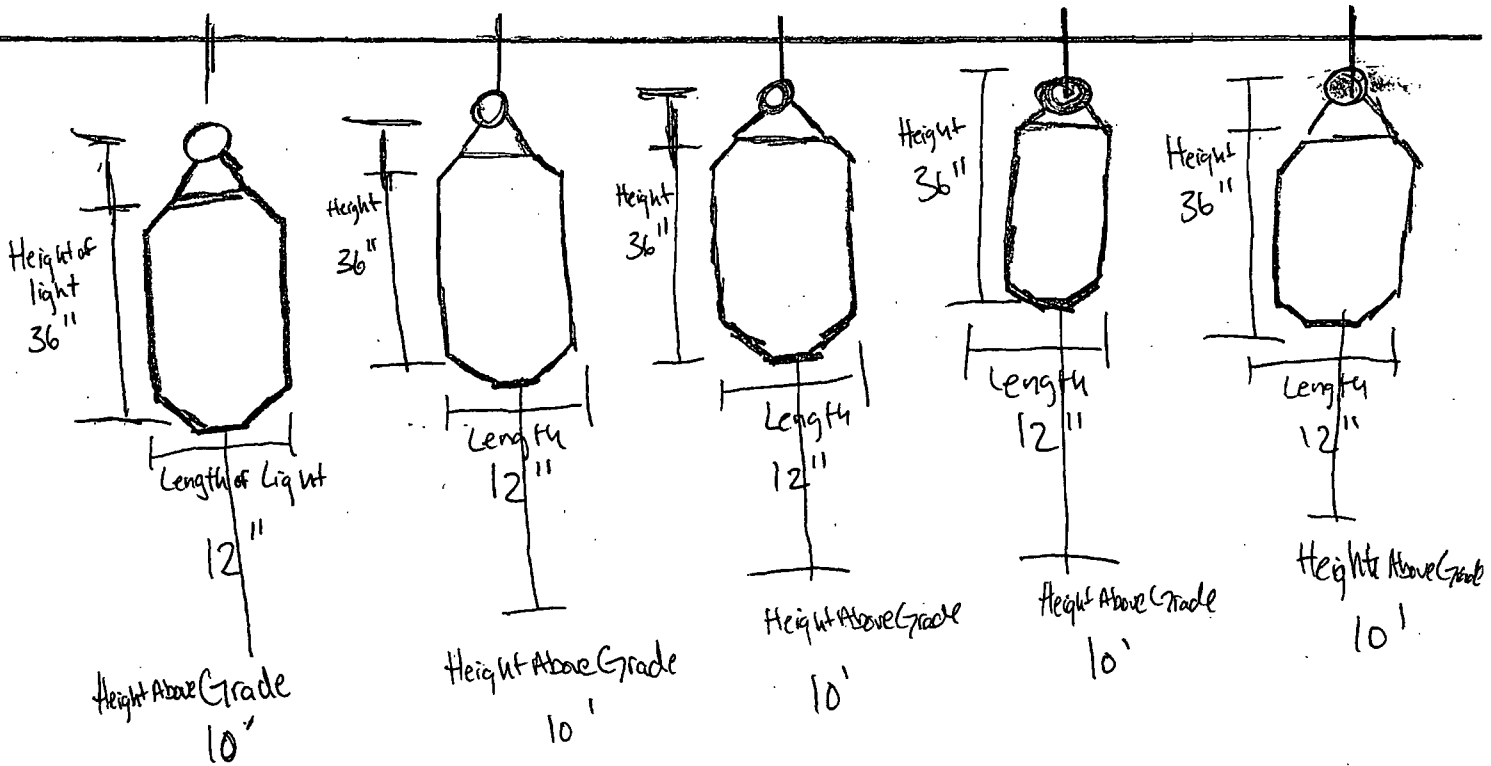 Height of
light
36"
Length of Light
12"
Height Above Grade
10'
Height
36"
Length
12"
Height Above Grade
10'
Height
36"
Length
12"
Height Above Grade
10'
Height
36"
Length
12"
Height Above Grade
10'
Height
36"
Length
12"
Height Above Grade
10'